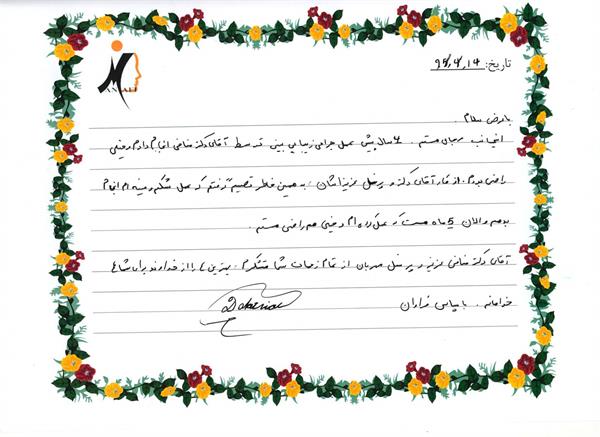 تاریخ: ۹۵,۴,۱۴
M
ANSALI
با عرض سلام.
اینجانب هستم. ۶ سال پیش عمل جراحی زیبایی بینی توسط آقای دکتر انجام دادم و خیلی
راضی بودم. از کار آقای دکتر و پرسنل عزیزشان. به همین خاطر تصمیم گرفتم که عمل شکم و سینه ام انجام
بدهم و الان 5 ماه هست که عمل کرده ام و خیلی هم راضی هستم.
آقای دکتر عزیز و پرسنل مهربان از تمام زحمات شما متشکرم. بهترین ها را از خداوند برای شما
خواهانم. با سپاس فراوان